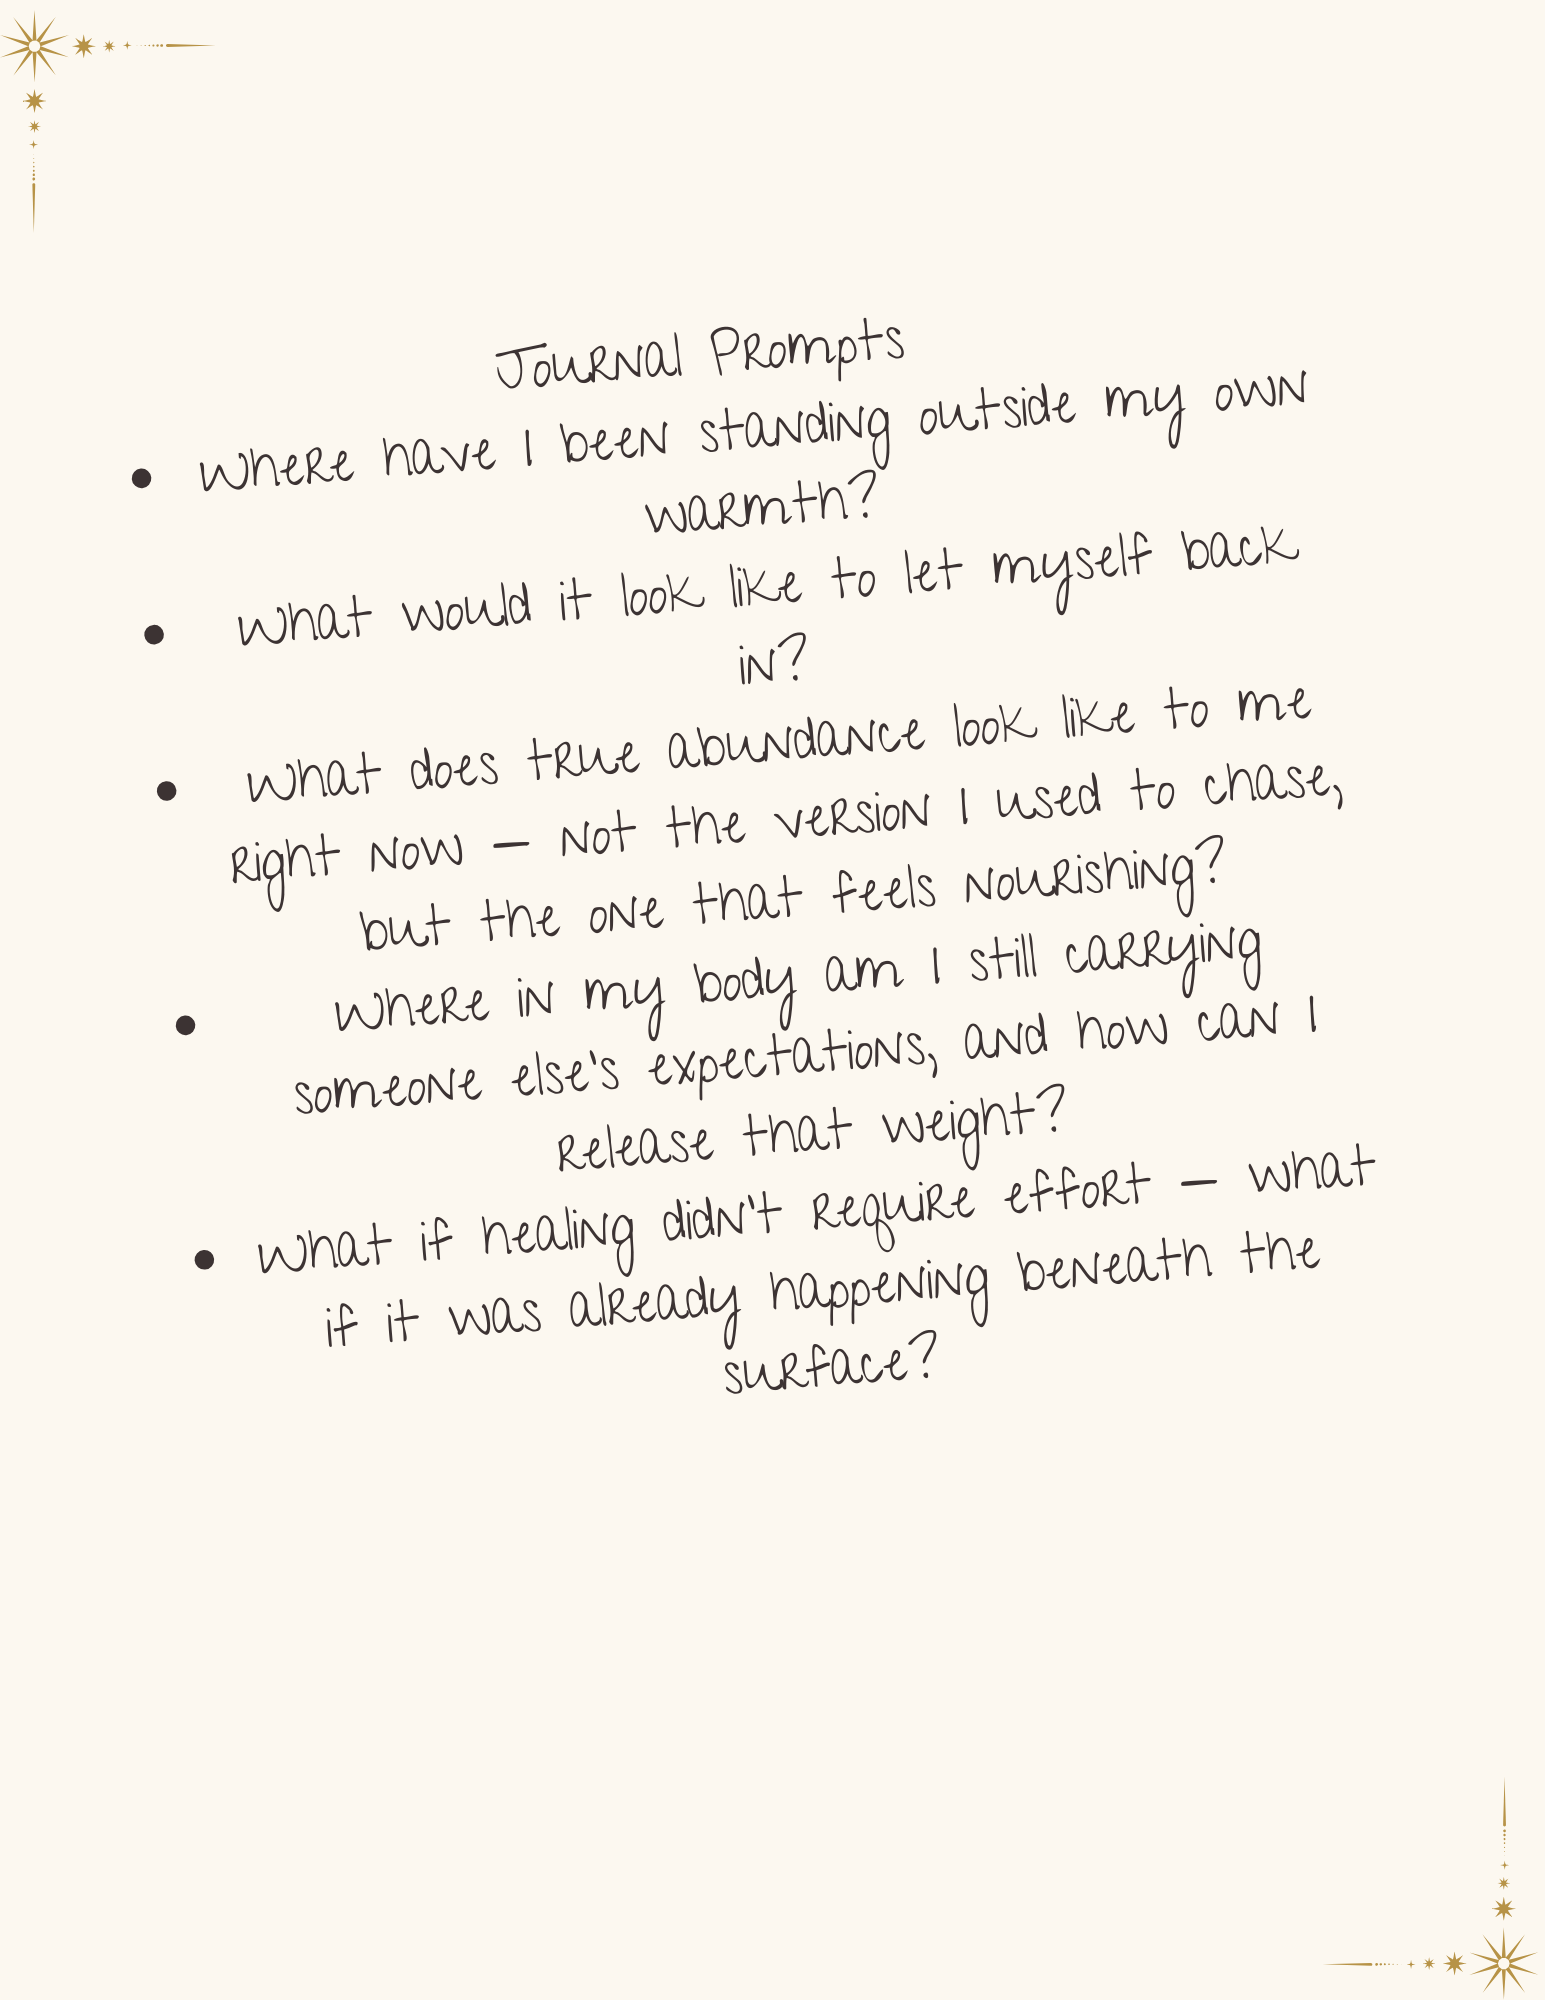 Journal Prompts
• Where have I been standing outside my own
warmth?
• What would it look like to let myself back
in?
• What does true abundance look like to me
right now — not the version I used to chase,
but the one that feels nourishing?
• Where in my body am I still carrying
someone else's expectations, and how can I
release that weight?
• What if healing didn't require effort — what
if it was already happening beneath the
surface?